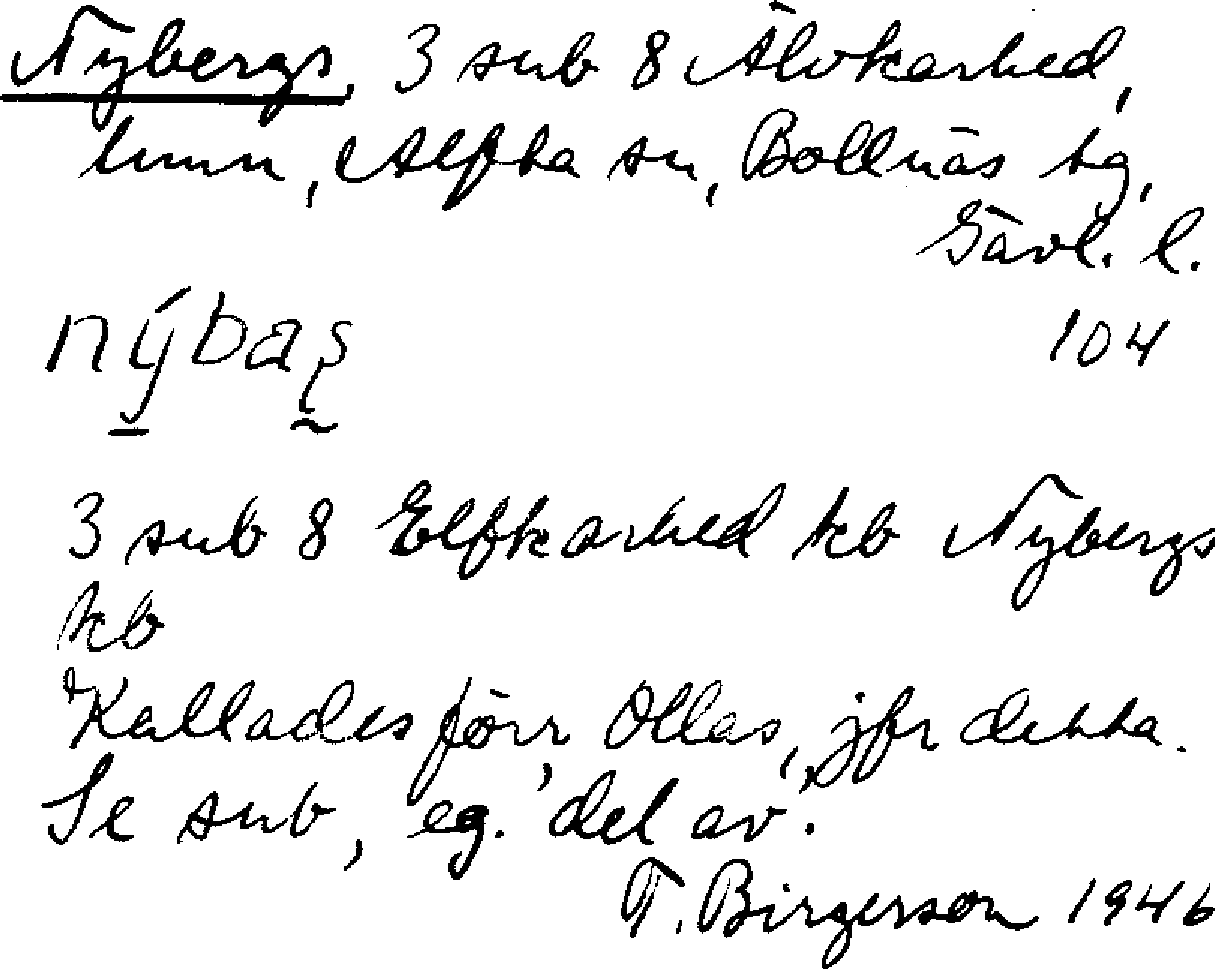 Nybergs, 3 sub 8 Älvkarhed,
hmn, Alfta sn, Bollnäs tg,
Gävl. l.
nýbas̨
104
3 sub 8 Elfkarhed kb Nybergs
kb
Kallades förr Ollas, jfr detta.
Se sub, eg. 'del av'.
T. Birgerson 1946